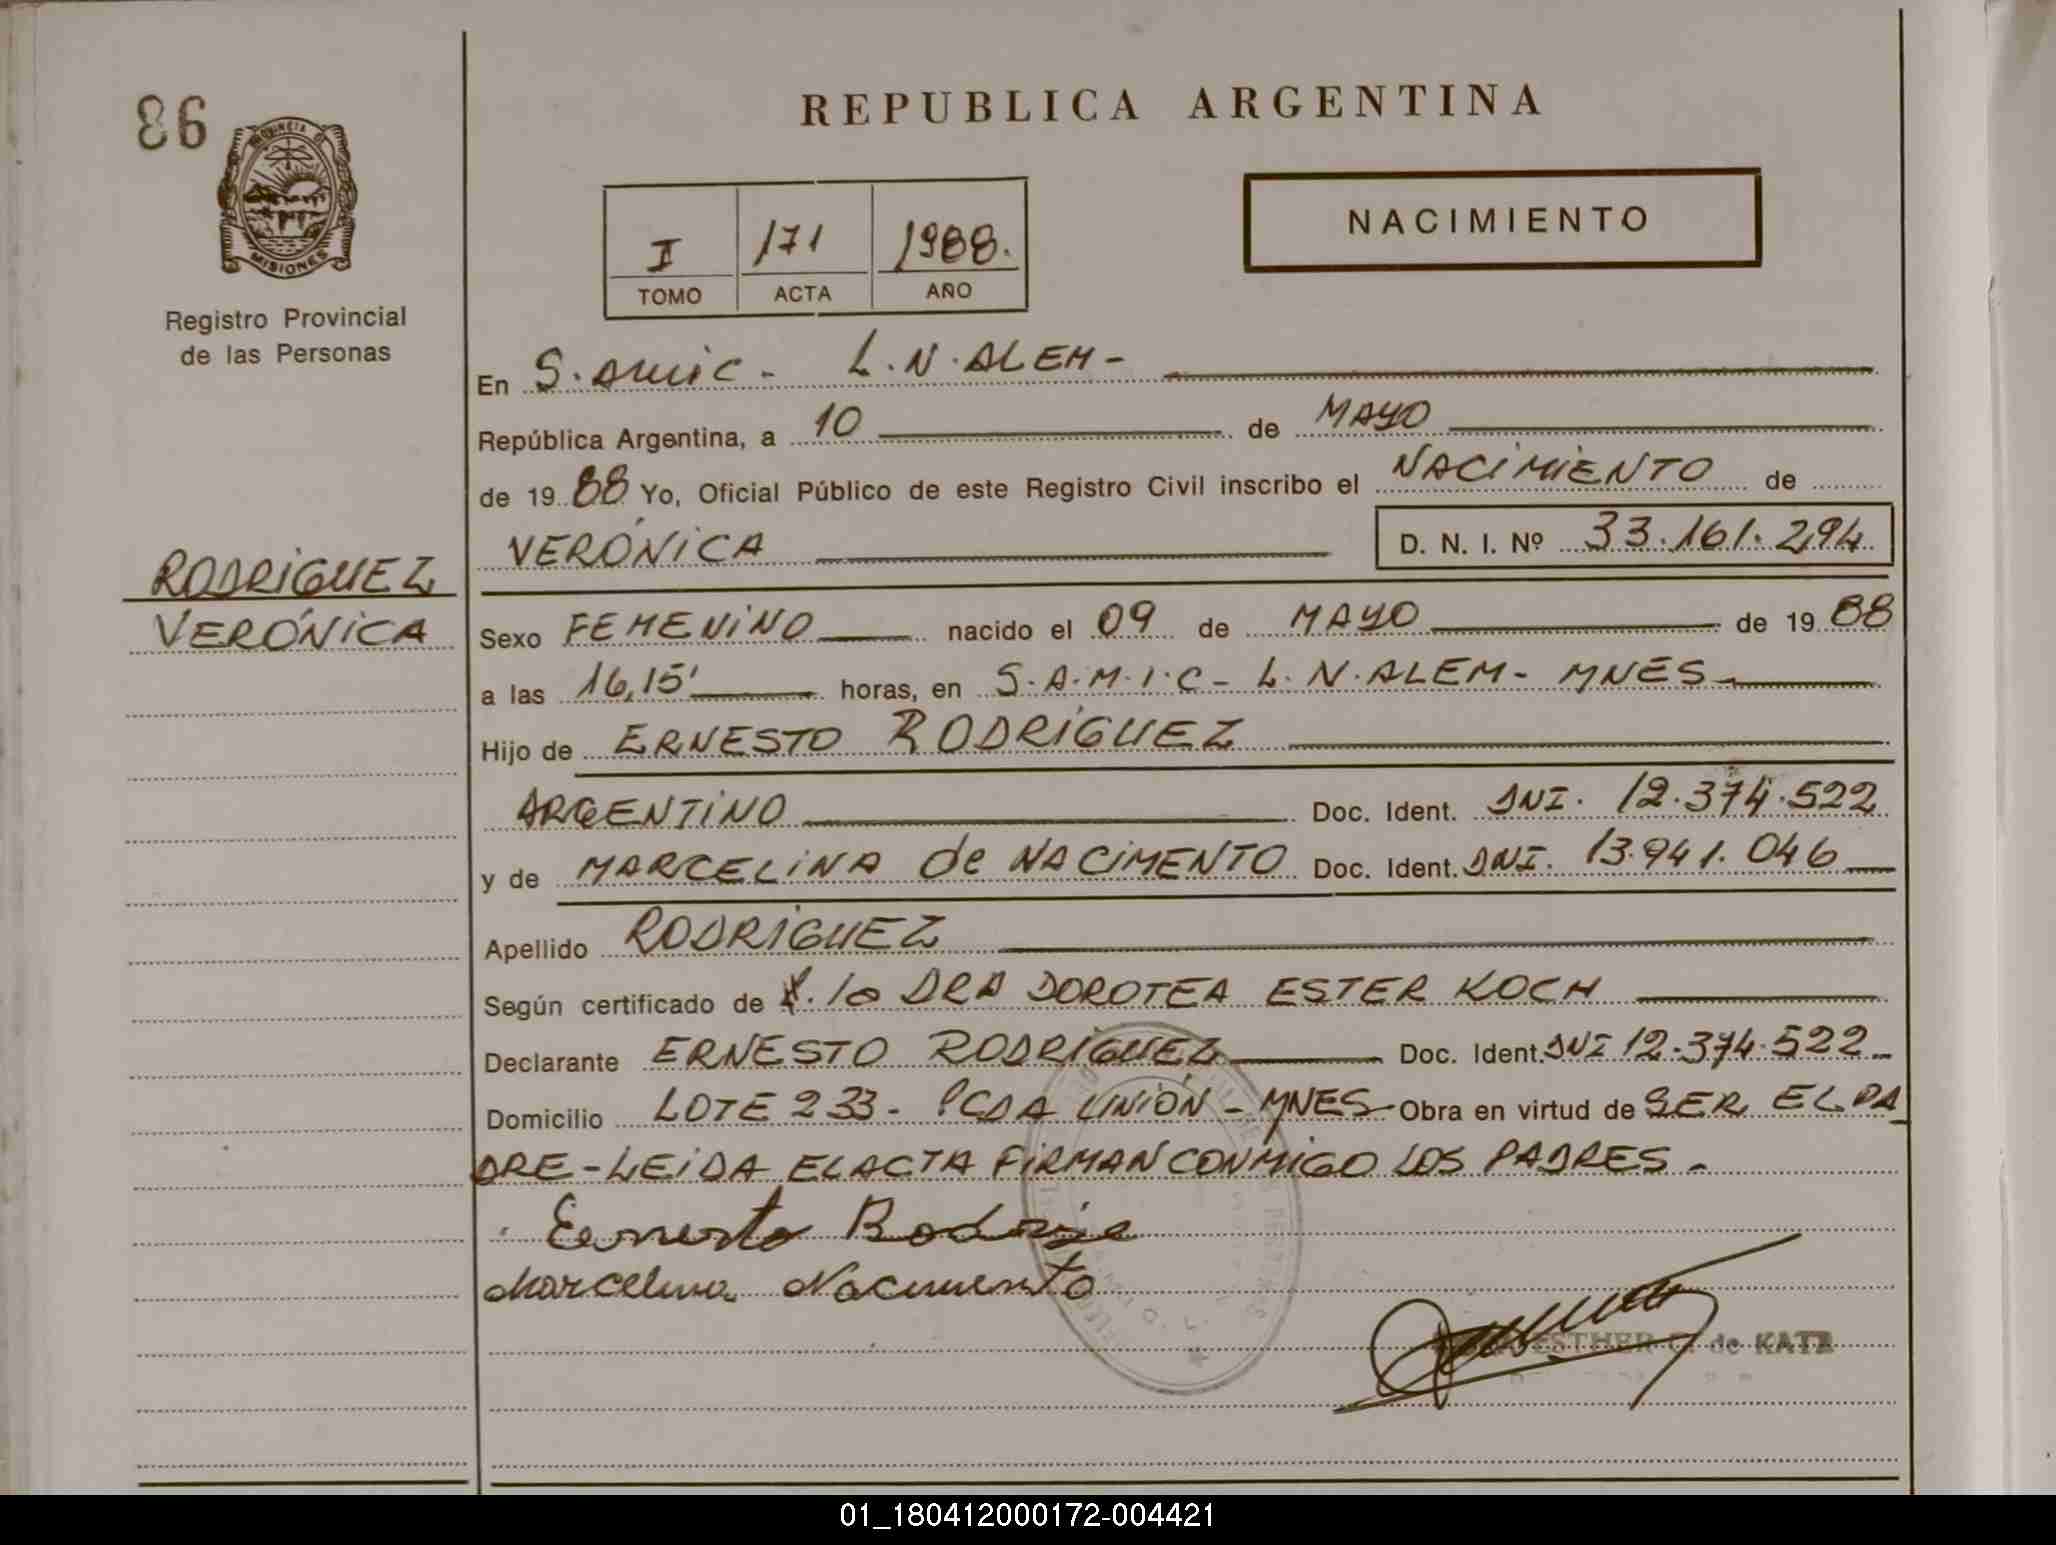 86
REPUBLICA ARGENTINA
PROVINCIA DE
MISIONES
Registro Provincial
de las Personas
I 171 1988.
TOMO ACTA AÑO
NACIMIENTO
En S. AMIC - L.N. ALEM -
República Argentina, a 10 de MAYO
de 19 88 Yo, Oficial Público de este Registro Civil inscribo el NACIMIENTO de
VERÓNICA D. N. I. Nº 33.161.294
RODRIGUEZ
VERÓNICA
Sexo FEMENINO nacido el 09 de MAYO de 19 88
a las 16,15' horas, en S.A.M.I.C - L.N. ALEM - MNES -
Hijo de ERNESTO RODRIGUEZ
ARGENTINO Doc. Ident. DNI. 12.374.522
y de MARCELINA de NACIMENTO Doc. Ident. DNI. 13.941.046
Apellido RODRIGUEZ
Según certificado de la DRA DOROTEA ESTER KOCH
Declarante ERNESTO RODRIGUEZ Doc. Ident. DNI 12.374.522
Domicilio LOTE 233 - PCDA UNIÓN - MNES - Obra en virtud de SER EL PA
DRE - LEIDA EL ACTA FIRMAN CONMIGO LOS PADRES.
Ernesto Rodrige
Marcelina Nacimento
ESTHER de KATZ
01_180412000172-004421